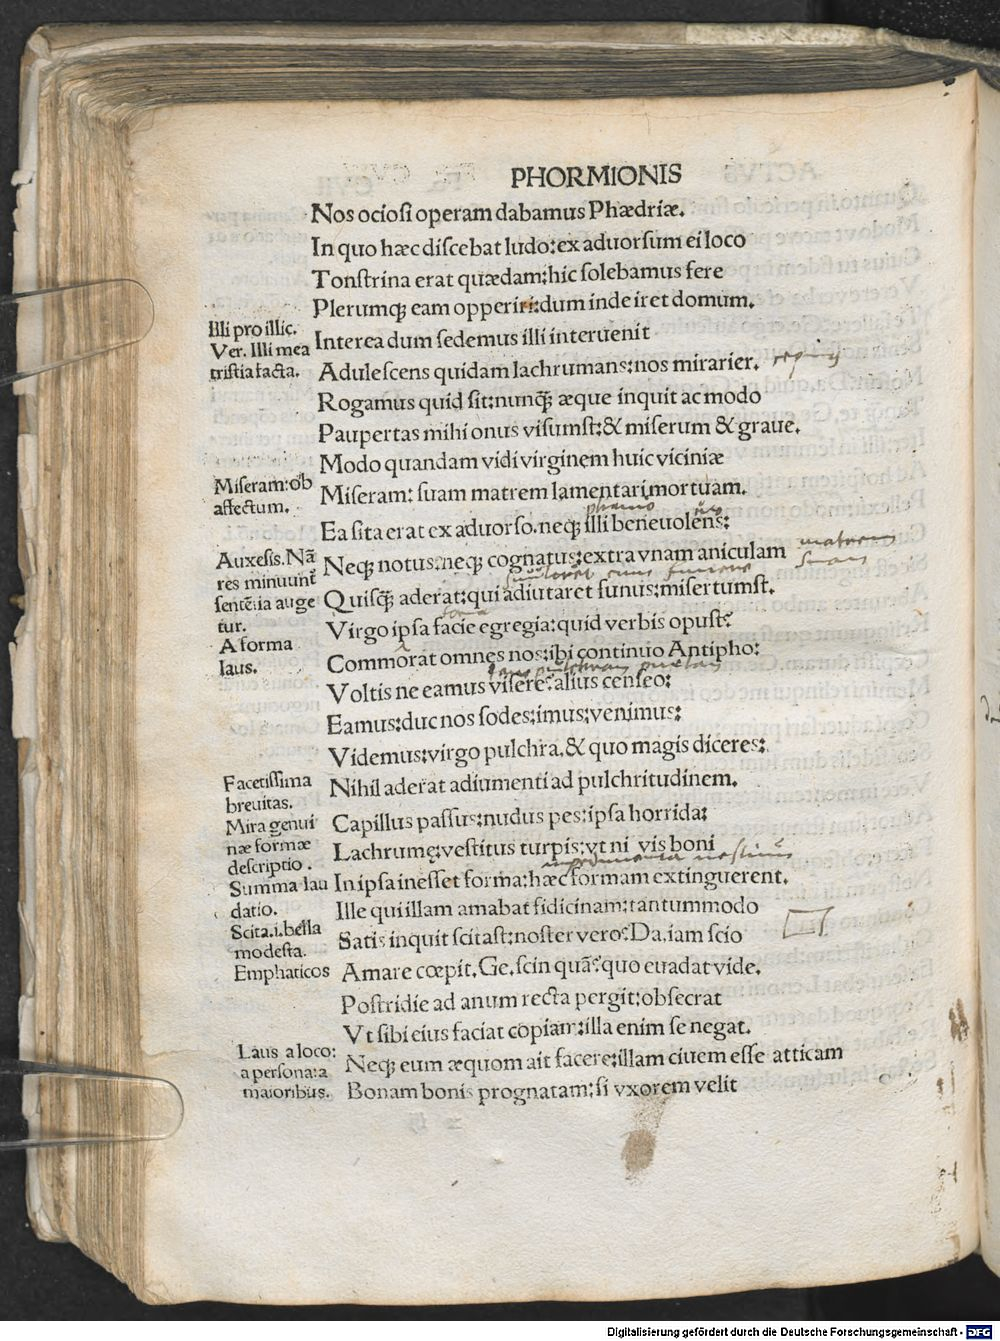 PHORMIONIS
Nos ociosi operam dabamus Phædriæ.
In quo hæc discebat ludo: ex aduorsum ei loco
Tonstrina erat quædam: hic solebamus fere
Plerumq; eam opperiri: dum inde iret domum.
Illi pro illic.
Ver. Illi mea
tristia facta.
Interea dum sedemus illi interuenit
Adulescens quidam lachrumans: nos mirarier.
Rogamus quid sit: nunq̃ æque inquit ac modo
Paupertas mihi onus visumst: & miserum & graue.
Modo quandam vidi virginem huic viciniæ
Miseram: ob
affectum.
Miseram: suam matrem lamentari mortuam.
Ea sita erat ex aduorso. neq; illi beneuolens:
Auxesis. Nã
res minuunt̃
sentẽtia auge
tur.
Neq; notus: neq; cognatus: extra vnam aniculam
matrem
suam
Quisq̃ aderat: qui adiutaret funus: misertumst.
forma
Virgo ipsa facie egregia: quid verbis opust?
A forma
laus.
Commorat omnes nos: ibi continuo Antipho:
Voltis ne eamus visere? alius censeo:
Eamus: duc nos sodes: imus: venimus:
Videmus: virgo pulchra, & quo magis diceres:
Facetissima
breuitas.
Nihil aderat adiumenti ad pulchritudinem.
Mira genui
næ formæ
descriptio.
Capillus passus: nudus pes: ipsa horrida:
Lachrumę: vestitus turpis: vt ni vis boni
Summa lau
datio.
In ipsa inesset forma: hæc formam extinguerent.
Ille qui illam amabat fidicinam: tantummodo
Scita. i. bella
modesta.
Satis inquit scitast: noster vero? Da. iam scio
Emphaticos
Amare cœpit. Ge. scin quã? quo euadat vide.
Postridie ad anum recta pergit: obsecrat
Vt sibi eius faciat copiam: illa enim se negat.
Laus a loco:
a persona: a
maioribus.
Neq; eum æquom ait facere: illam ciuem esse atticam
Bonam bonis prognatam: si vxorem velit
Digitalisierung gefördert durch die Deutsche Forschungsgemeinschaft - DFG